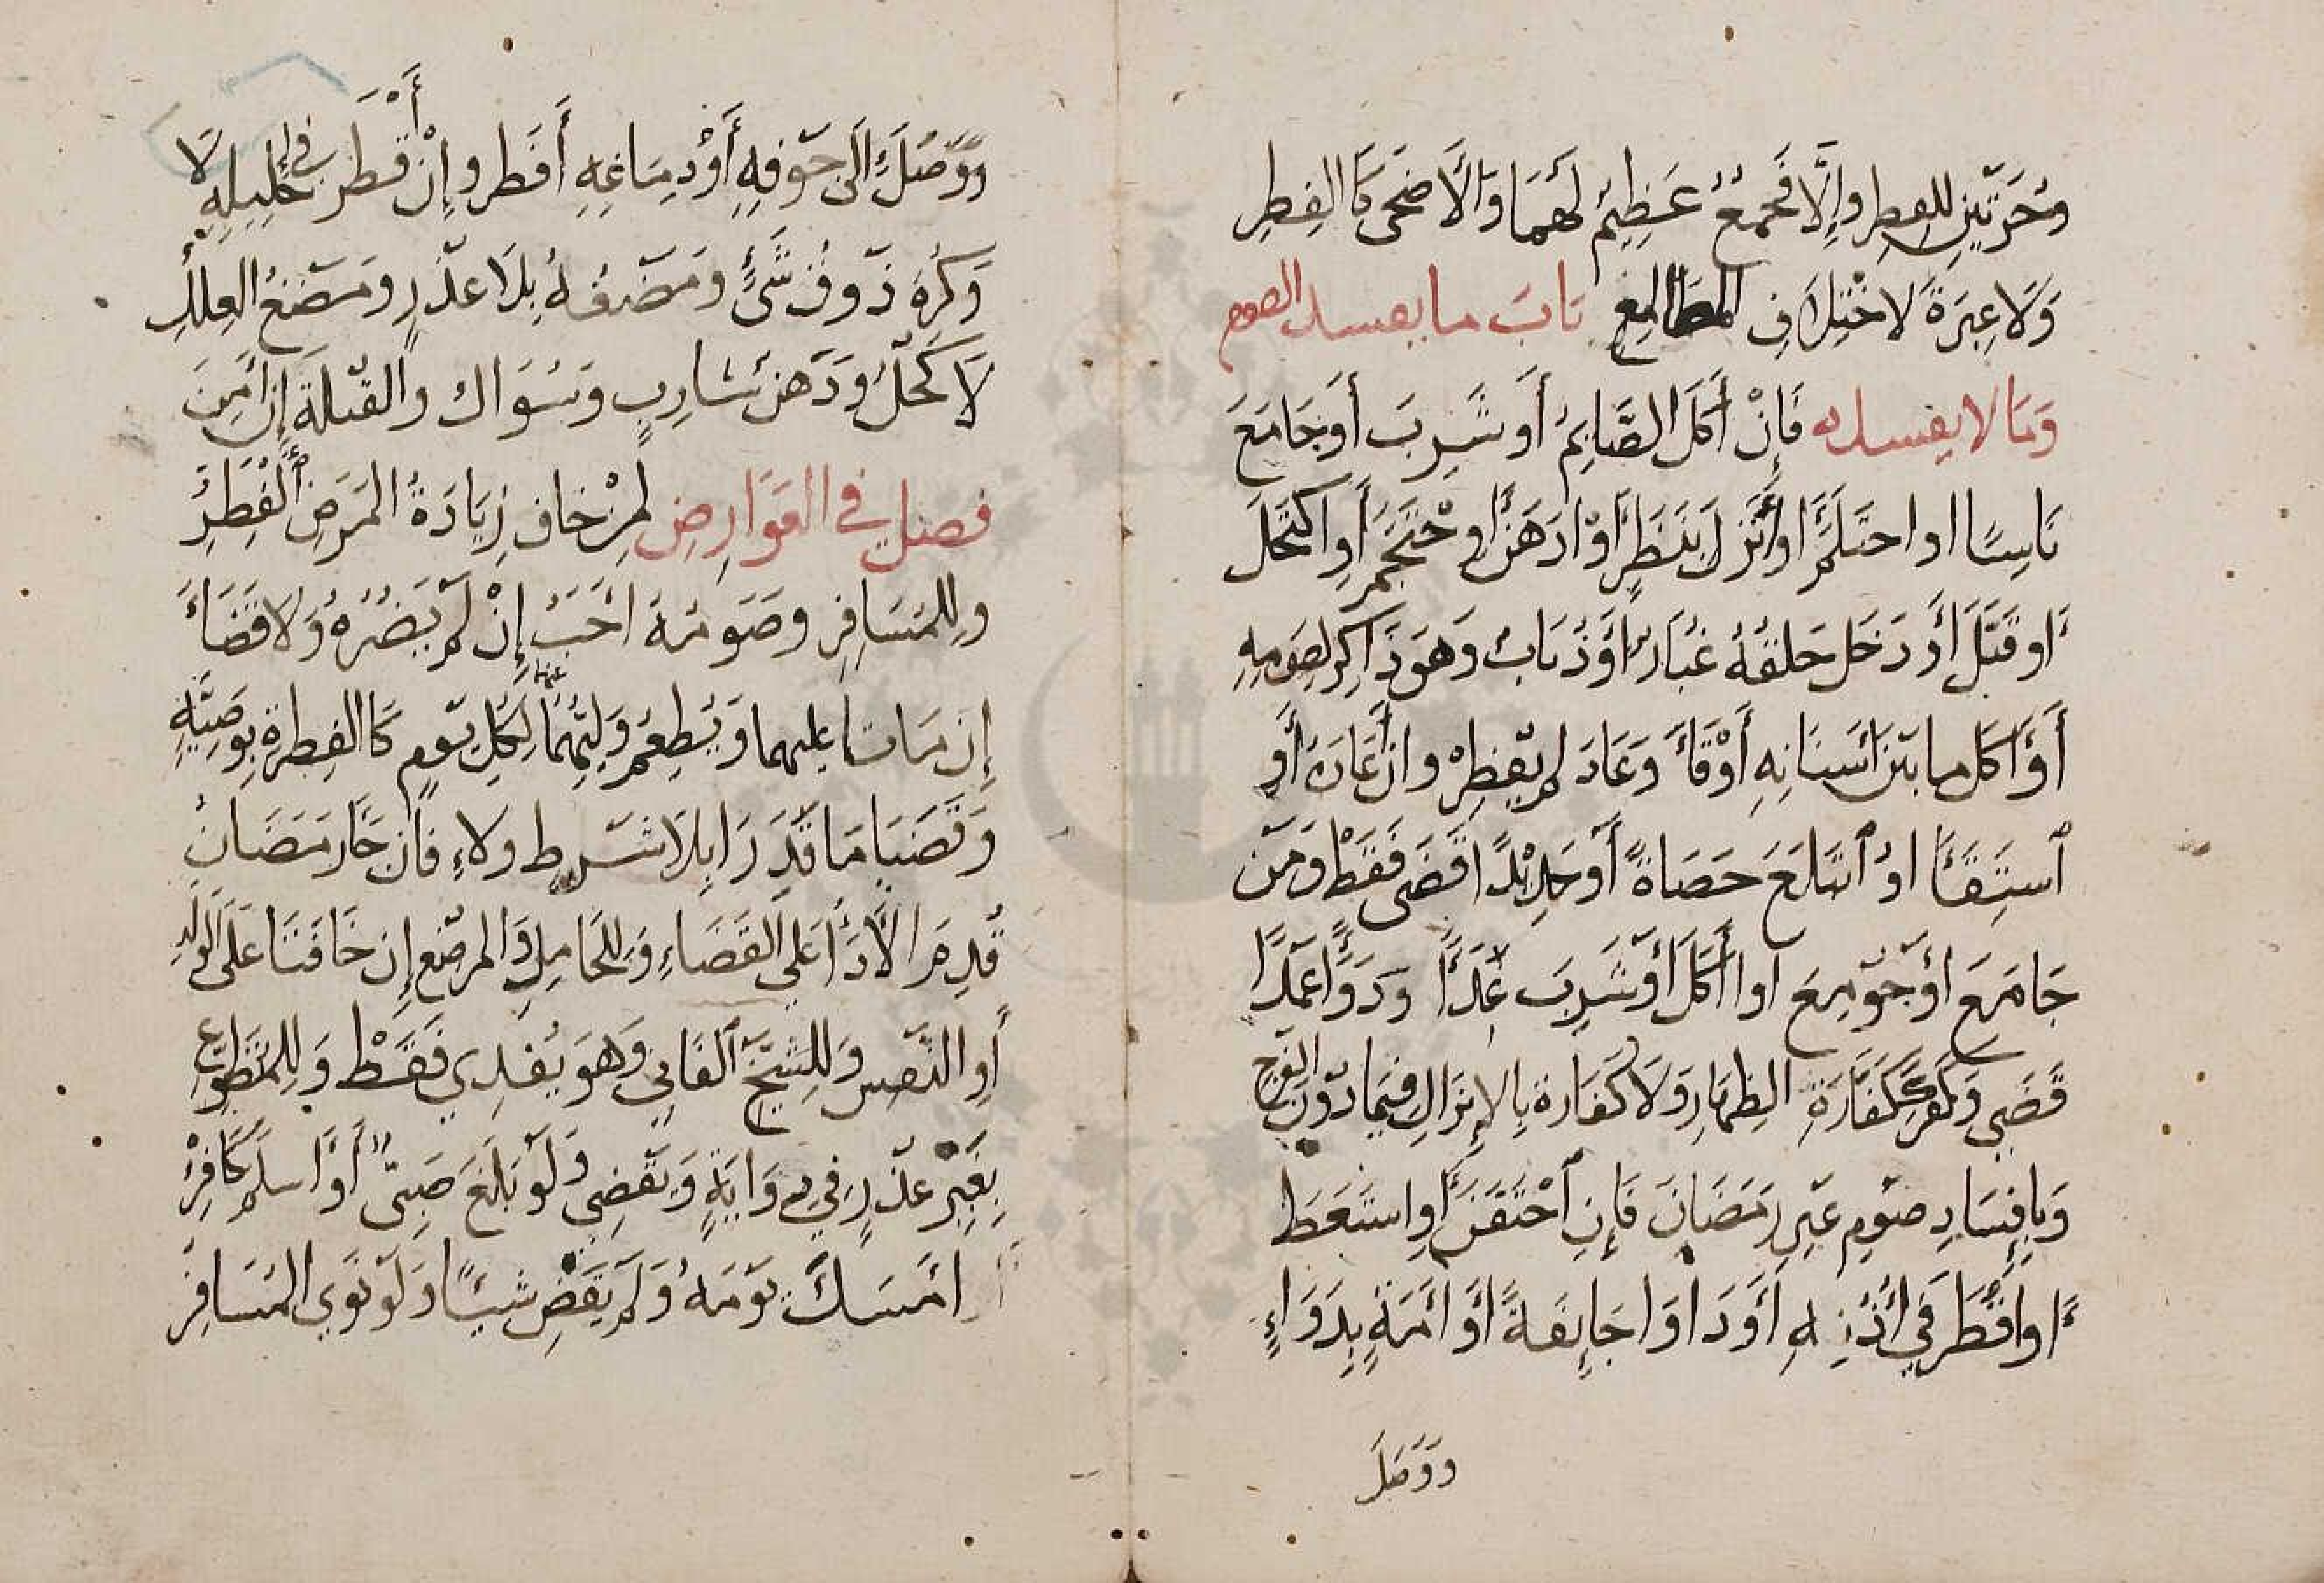 وحرتين للفطر وإلا فجمع عظيم لهما والأضحى كالفطر
ولا عبرة لاختلاف المطالع باب ما يفسد الصوم
وما لا يفسده فإن أكل الصايم أو شرب أو جامع
ناسيا او احتلم او أنزل بنظر أو ادهن أو حتجم أو اكتحل
أو قبل أو دخل حلقه غبار أو ذباب وهو ذاكر لصومه
أو أكل ما بين أسنانه أو قاء وعاد لم يفطر وان أعاده أو
ٱستقاء او ٱبتلع حصاة أو حديدا قضى فقط ومن
جامع أو جومع أو اأكل أو شرب غداء ودواء عمدا
قضى وكفر ككفارة الظهار ولا كفارة بالإنزال فيما دون الفرج
وبإفساد صوم غير رمضان فإن ٱحتقن أو استعط
او اقطر في أذنه أو داوا جايفة أو أمة بدواء
ووصل
ووصل الى جوفه أو دماغه أفطر وإن أقطر في إحليله لا
وكره ذوق شئ ومضغه بلا عذر ومضغ العلك
لا كحل ودهن شارب وسواك والقبلة إن أمن
فصل في العوارض لمن خاف زيادة المرض ٱلفطر
وللمسافر وصومه احب إن لم يضره ولا قضاء
إن ماتا عليهما ويطعم وليهما لكل يوم كالفطرة بوصية
وقضيا ما قدرا بلا شرط ولاء فان جا رمضان
قدم الأداء على القضاء وللحامل والمرضع إن خافتا على الولد
أو النفس وللشيخ ٱلفاني وهو يفدي فقط وللمتطوع
بغير عذر في رواية ويقضي ولو بلغ صبي أو أسلم كافر
امسك يومه ولم يقض شيئا ولو نوى المسافر